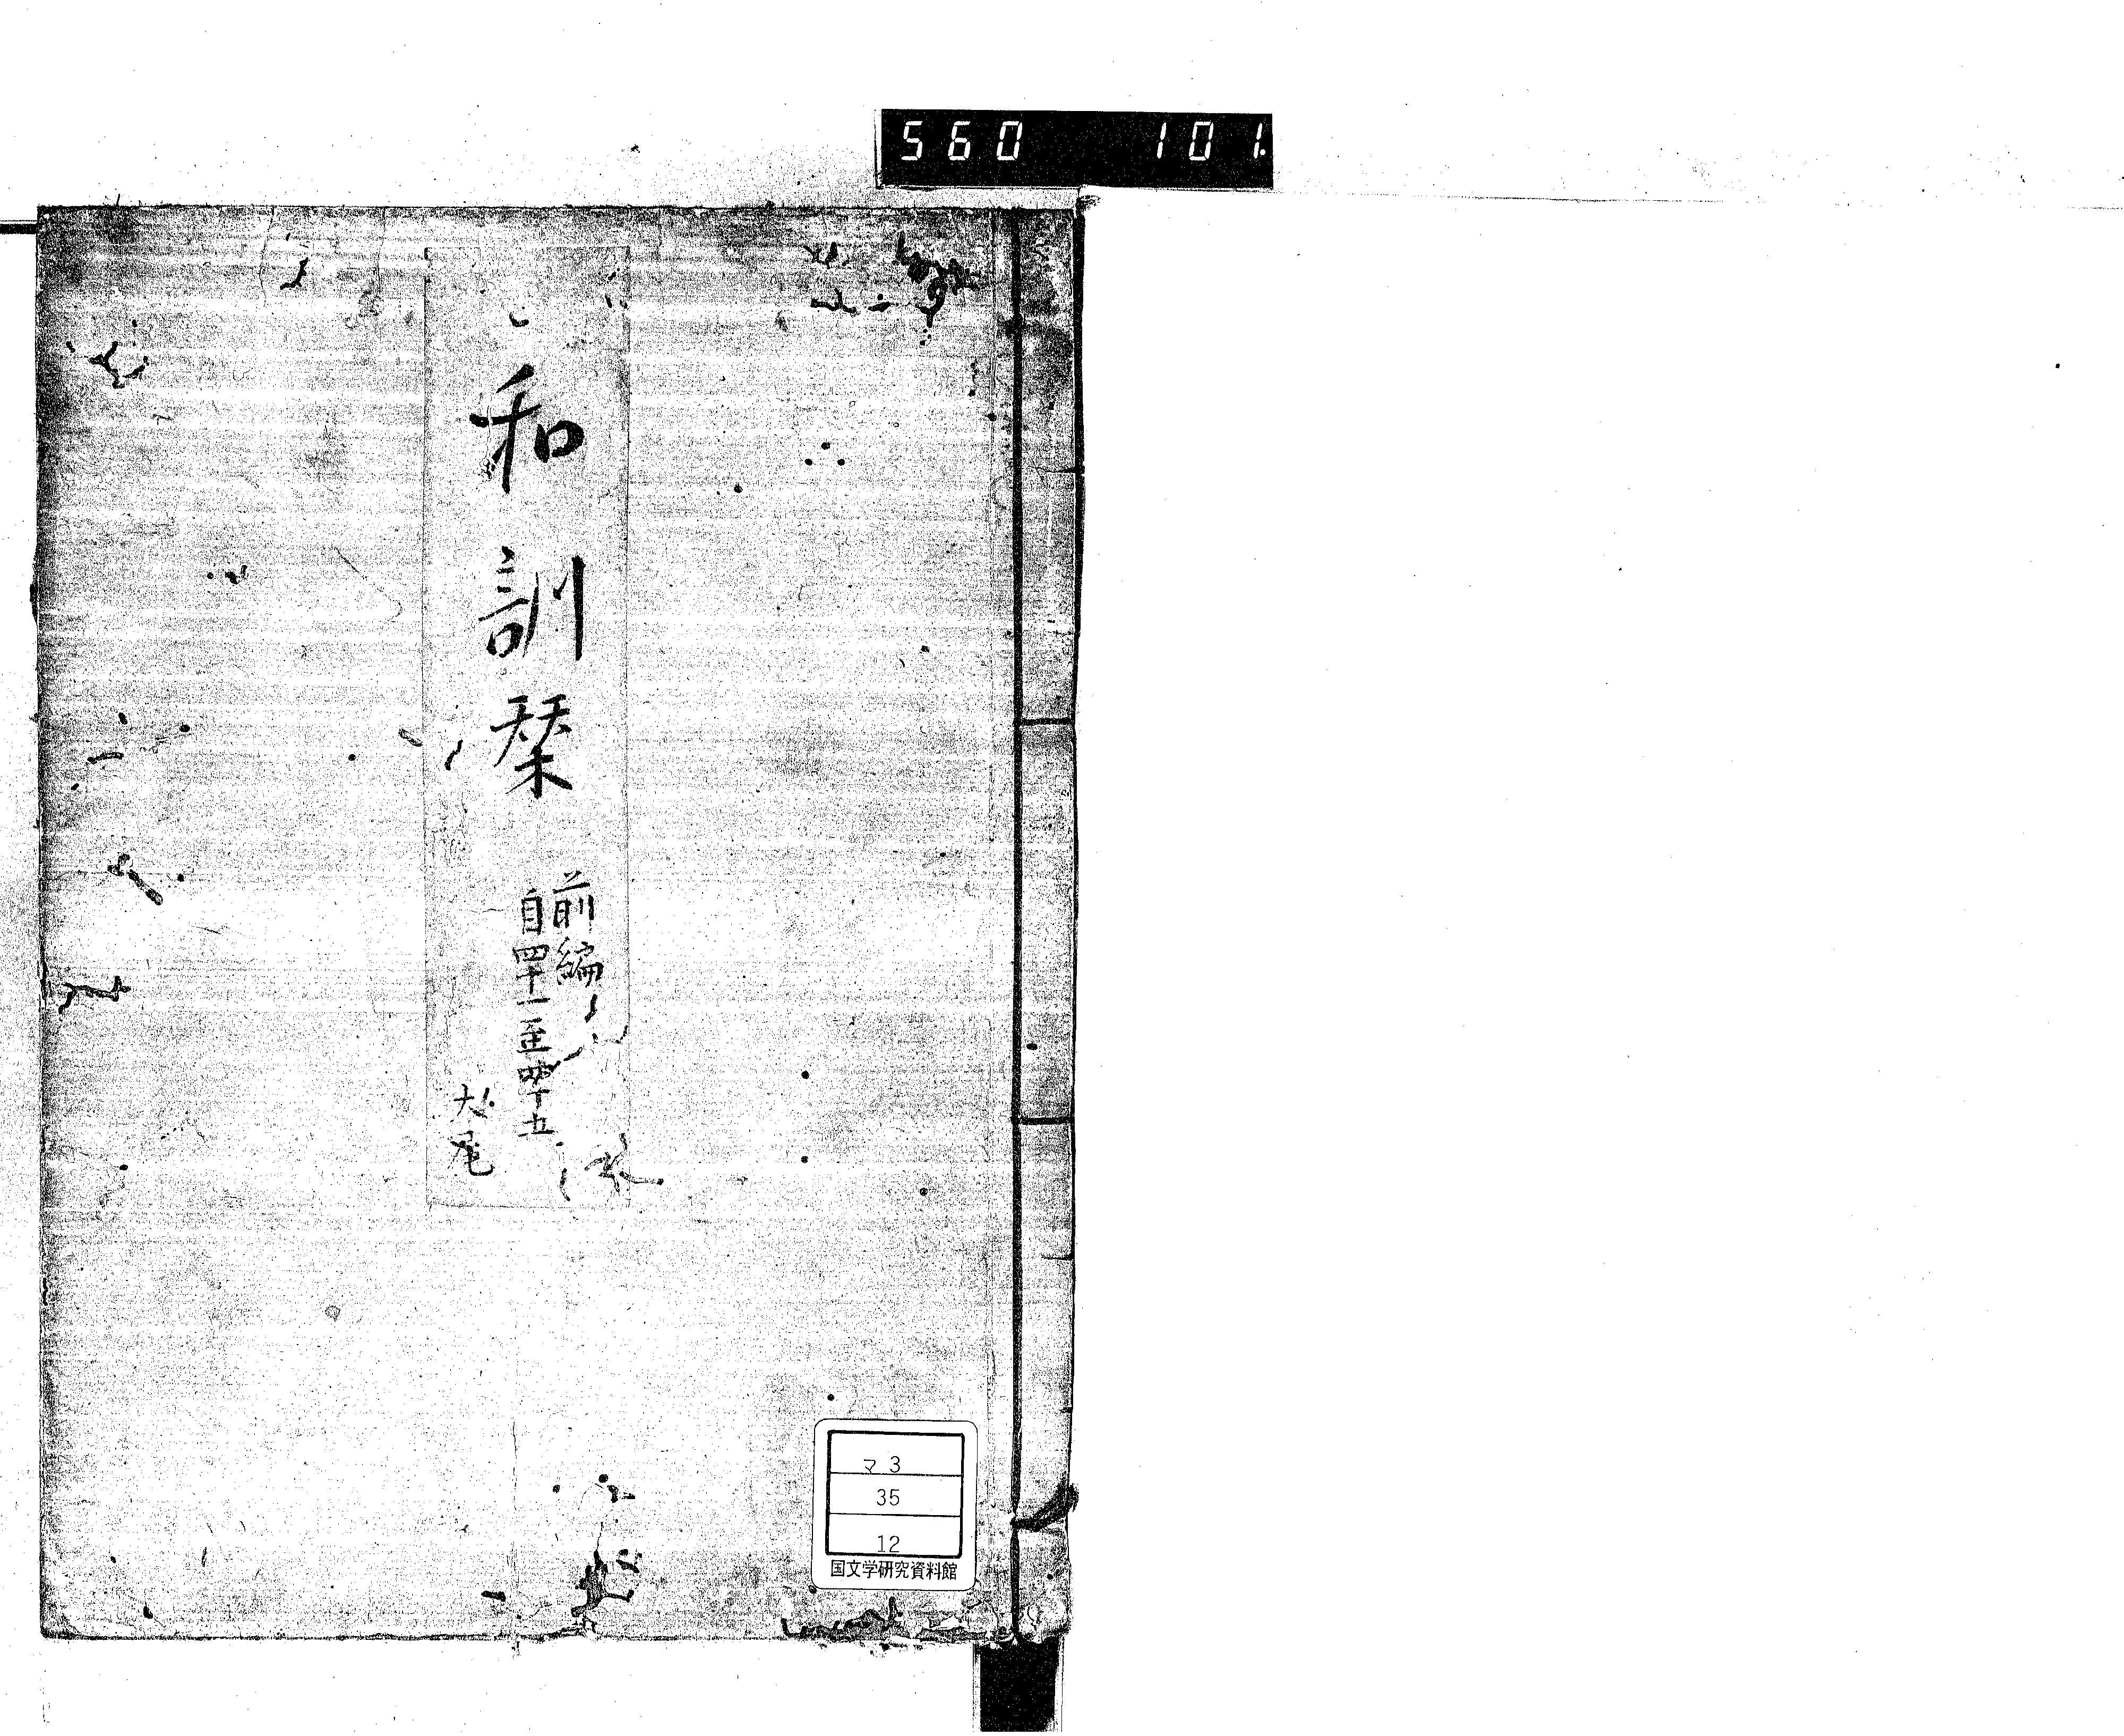 560 101.
和訓栞
前編
自四十一至四十五
大尾
マ3
35
12
国文学研究資料館